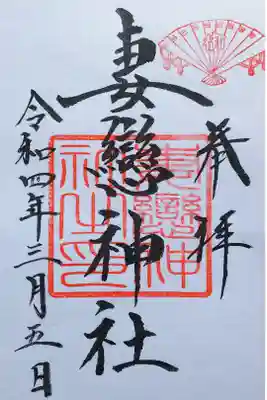 奉拝
妻戀神社
妻戀神社之印
令和四年三月五日